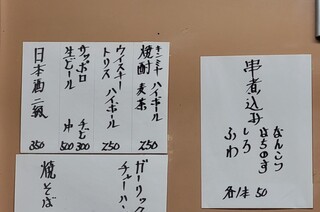 キンミヤ ハイボール
焼酎 麦茶 250
ウイスキー ハイボール
トリス ハイボール 250
サッポロ チビ 300
生ビール 中 500
日本酒二級 350
ガーリック
チャーハン
焼そば
串煮込み
なんこつ
はちのす
しろ
ふわ
各1本 50